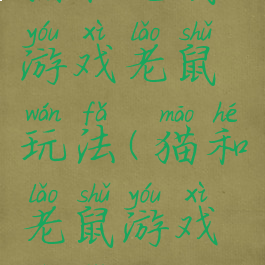 yóu xì lǎo shǔ
游戏老鼠
wán fǎ māo hé
玩法(猫和
lǎo shǔ yóu xì
老鼠游戏